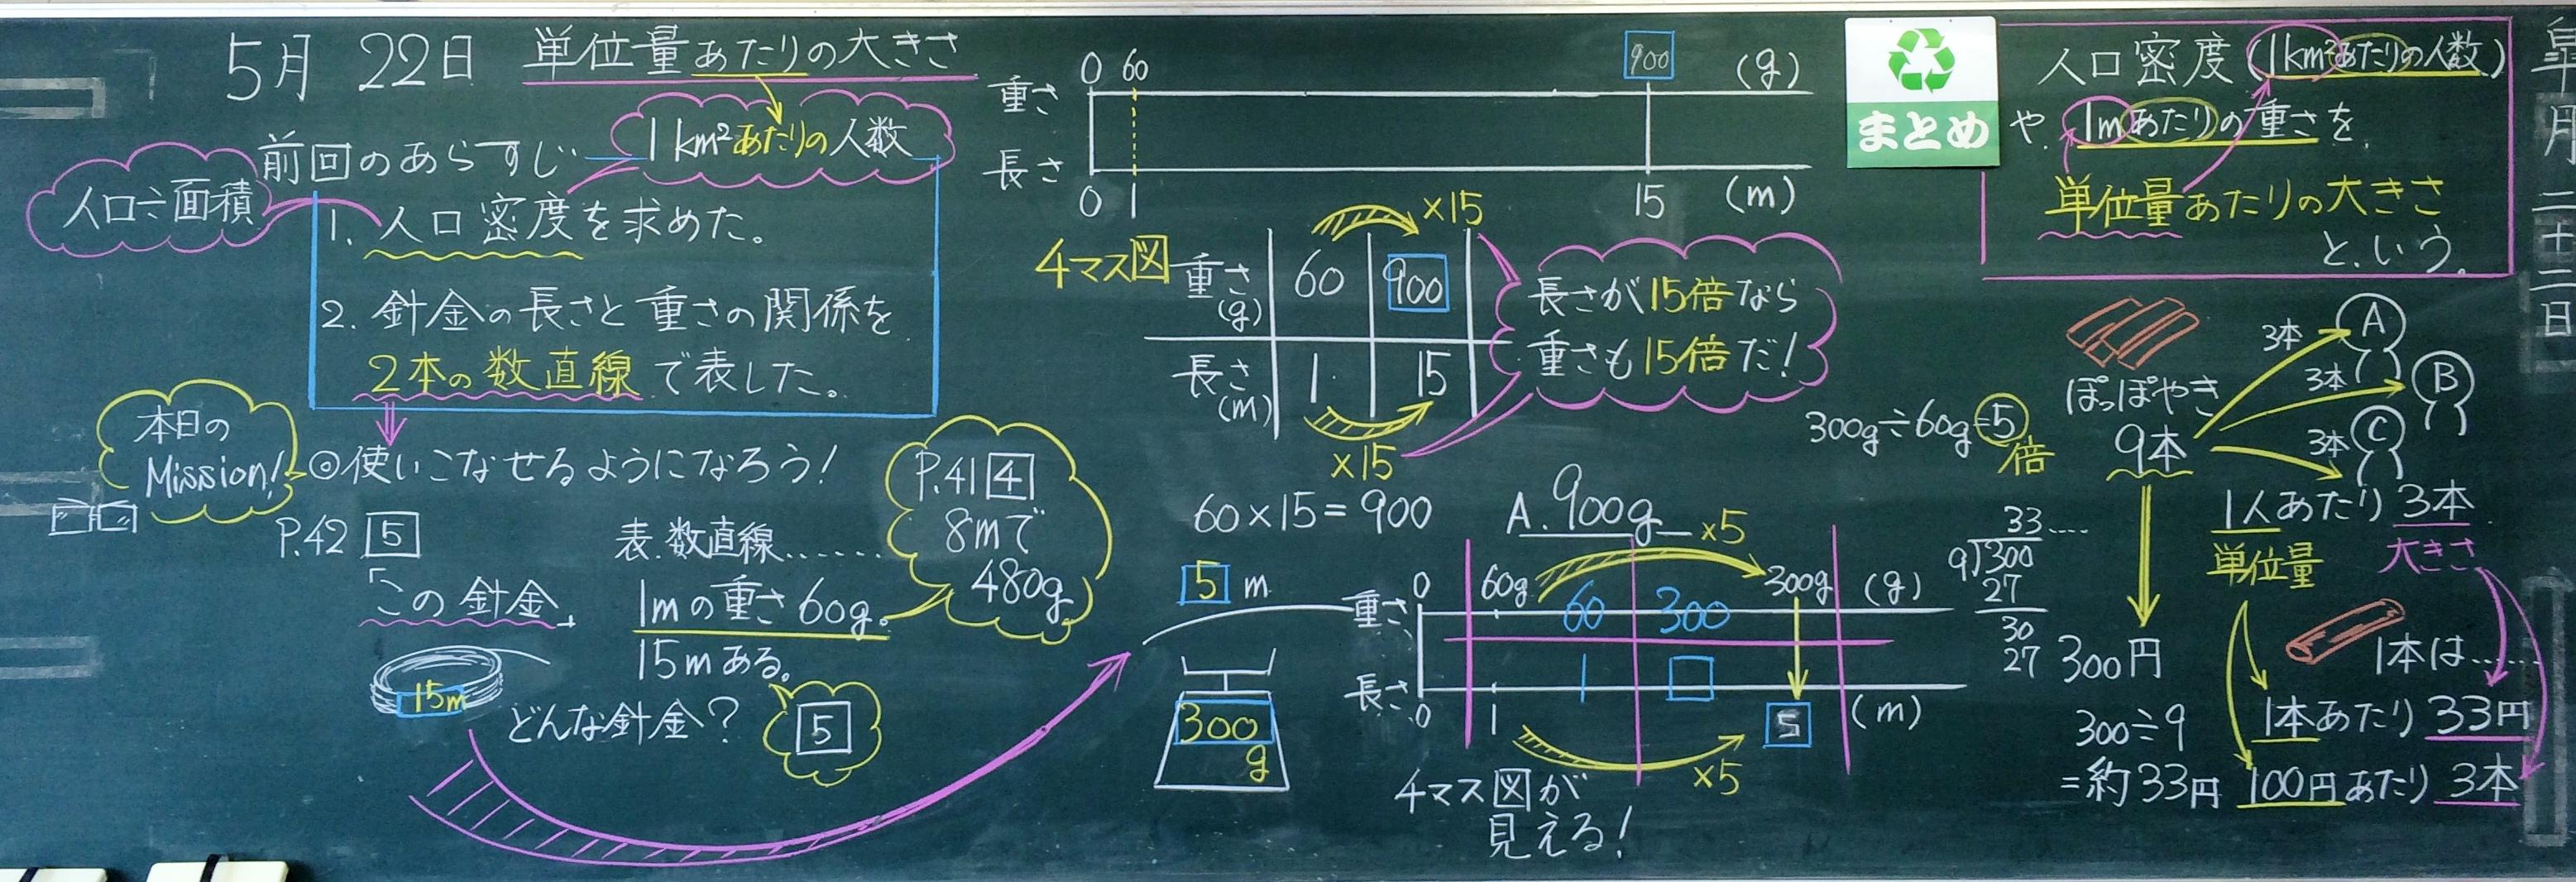 5月 22日 単位量あたりの大きさ
1km²あたりの人数
前回のあらすじ
人口÷面積
1. 人口密度を求めた。
2. 針金の長さと重さの関係を
2本の数直線で表した。
本日の
Mission!
◎使いこなせるようになろう!
P.42 5
「この針金」
15m
表.数直線……
1mの重さ60g。
15mある。
どんな針金?
5
P.41 4
8mで
480g
0 60 900 (g)
重さ
長さ
0 1 15 (m)
4マス図
×15
重さ(g) 60 900
長さ(m) 1 15
×15
長さが15倍なら
重さも15倍だ!
60×15=900
A. 900g
5 m
300
g
×5
0 60g 300g (g)
重さ
60 300
1 □
長さ
0 1 5 (m)
×5
4マス図が
見える!
まとめ
人口密度(1km²あたりの人数)
や、1mあたりの重さを
単位量あたりの大きさ
という。
300g÷60g=5
倍
ぽっぽやき
9本
3本 A
3本 B
3本 C
1人あたり 3本
単位量 大きさ
33....
9)300
27
30
27
300円
300÷9
=約33円
1本は……
1本あたり 33円
100円あたり 3本
皐月二十二日